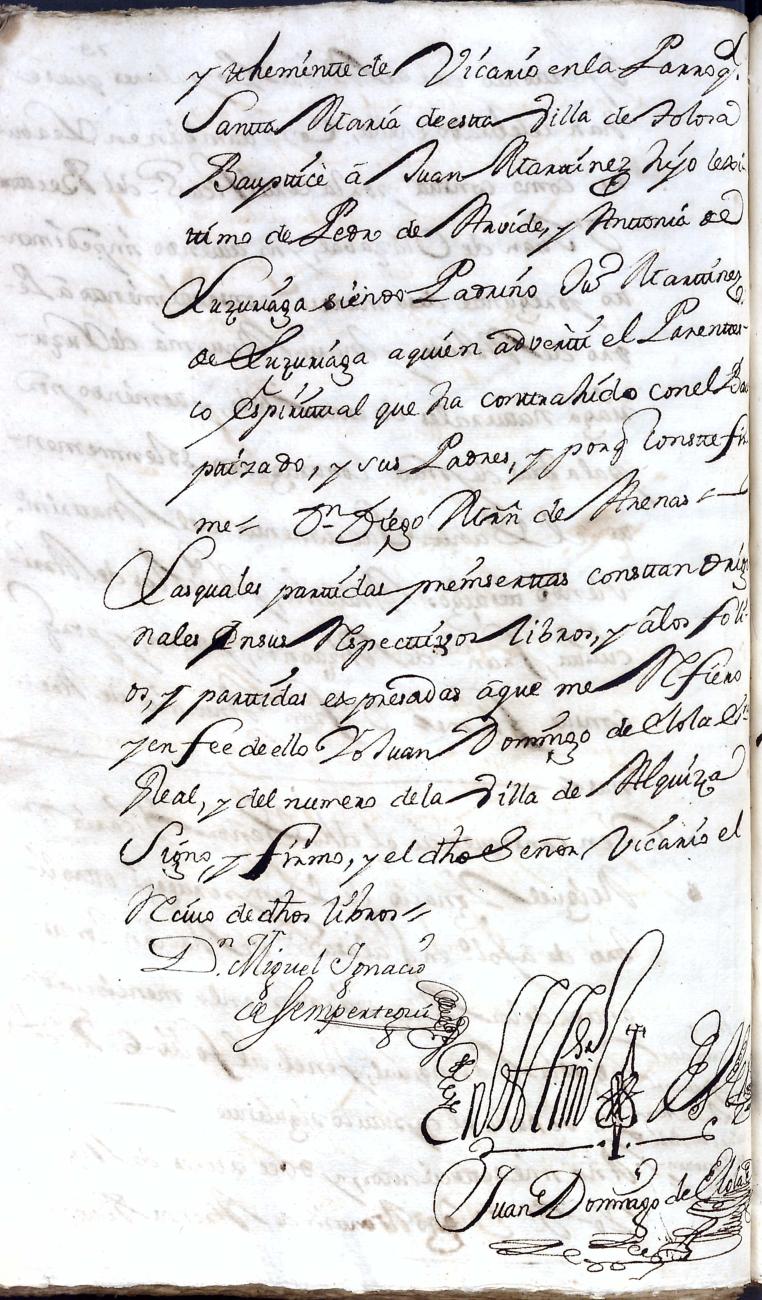 y theniente de Vicario en la Parroq.l
Santta Maria de estta Villa de Tolosa
Bauptticè â Juan Martinez hijo lexi-
ttimo de Pedro de Arvide, y Anttonia de
Luzuriaga siendo Padrino Ju.o Marttinez
de Luzuriaga aquien adverttí el Parenttes-
co Espirittual que ha conttrahido con el Bau
ptizado, y sus Padres, y porq.e constte fir
me= D.n Diego Mrñ de Arenas
Las quales parttidas preinserttas consttan orixi
nales en sus Respecttivos libros, y âlos foli-
os, y parttidas expresadas âque me Refiero
y en fee de ello Yo Juan Domingo de Elola Es.no
Real, y del numero de la Villa de Alquiza
Signo, y firmo, y el dho Señor Vicario el
Recivo de dhos libros=
D.n Miguel Ignacio
de Sempertegui
En Testtim.o de Verdad
Juan Domingo de Elola